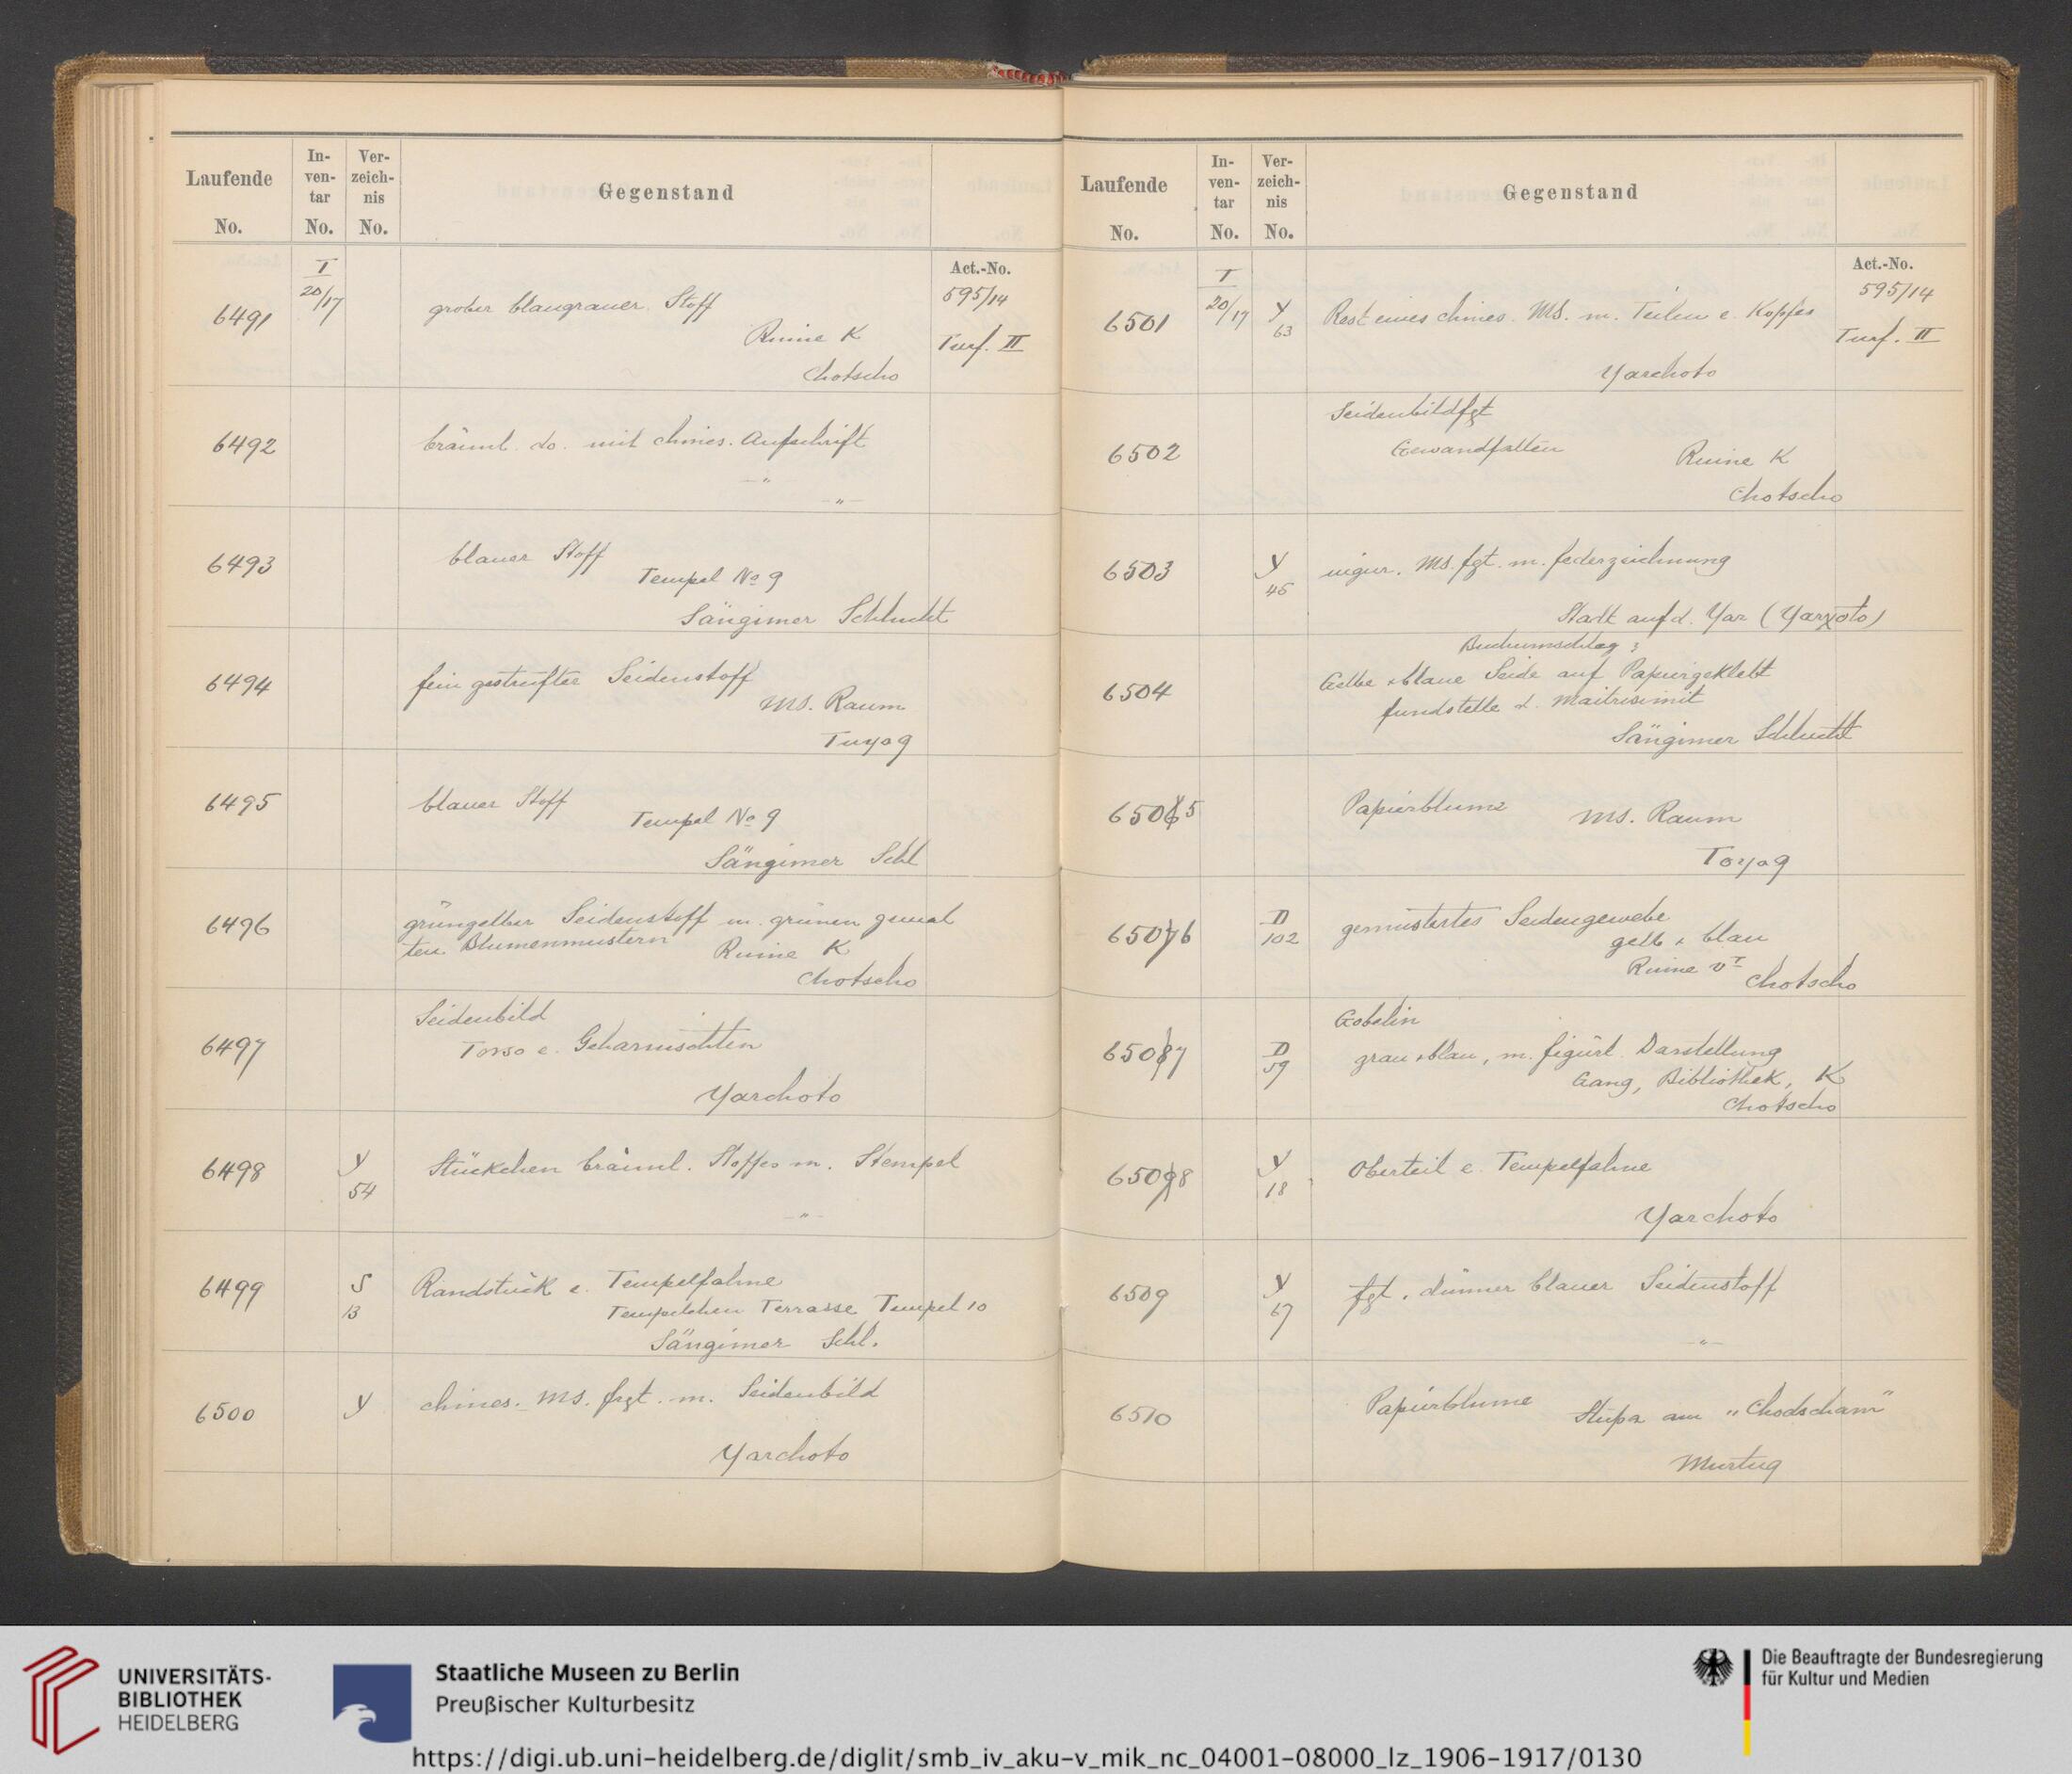 Laufende No.
In-ven-tar No.
Ver-zeich-nis No.
Gegenstand
Act.-No.
595/14
Turf. II
6491
I
20/17
grober blaugrauer Stoff
Ruine K
Chotscho
6492
bräunl. do. mit chines. Aufschrift
-"-
-"-
6493
blauer Stoff
Tempel No 9
Sängimer Schlucht
6494
fein gestreifter Seidenstoff
MS. Raum
Tuyoq
6495
blauer Stoff
Tempel No 9
Sängimer Schl
6496
grüngelber Seidenstoff m. grünen gemal
ten Blumenmustern
Ruine K
Chotscho
6497
Seidenbild
Torso e. Geharnischten
Yarchoto
6498
Y
54
Stückchen bräunl. Stoffes m. Stempel
-"-
6499
S
13
Randstück e. Tempelfahne
Tempelchen Terrasse Tempel 10
Sängimer Schl.
6500
Y
chines. MS. frgt. m. Seidenbild
Yarchoto
Laufende No.
In-ven-tar No.
Ver-zeich-nis No.
Gegenstand
Act.-No.
595/14
Turf. II
6501
I
20/17
Y
63
Rest eines chines. MS. m. Teilen e. Kopfes
Yarchoto
6502
Seidenbildfgt
Gewandfalten
Ruine K
Chotscho
6503
Y
46
uigur. MS. fgt. m. Federzeichnung
Stadt auf d. Yar (Yarxoto)
6504
Buchumschlag?
Gelbe + blaue Seide auf Papier geklebt
Fundstelle d. Maitrisimit
Sängimer Schlucht
65065
Papierblume
MS. Raum
Toyoq
65076
D
102
gemustertes Seidengewebe
gelb + blau
Ruine
Chotscho
65087
D
59
Gobelin
grau + blau, m. figürl. Darstellung
Gang, Bibliothek, K
Chotscho
65098
Y
18
Oberteil e. Tempelfahne
Yarchoto
6509
Y
67
fgt. dünner blauer Seidenstoff
-"-
6510
Papierblume
Stupa am "Chodscham"
Murtuq
UNIVERSITÄTS-
BIBLIOTHEK
HEIDELBERG
Staatliche Museen zu Berlin
Preußischer Kulturbesitz
Die Beauftragte der Bundesregierung
für Kultur und Medien
https://digi.ub.uni-heidelberg.de/diglit/smb_iv_aku-v_mik_nc_04001-08000_lz_1906-1917/0130